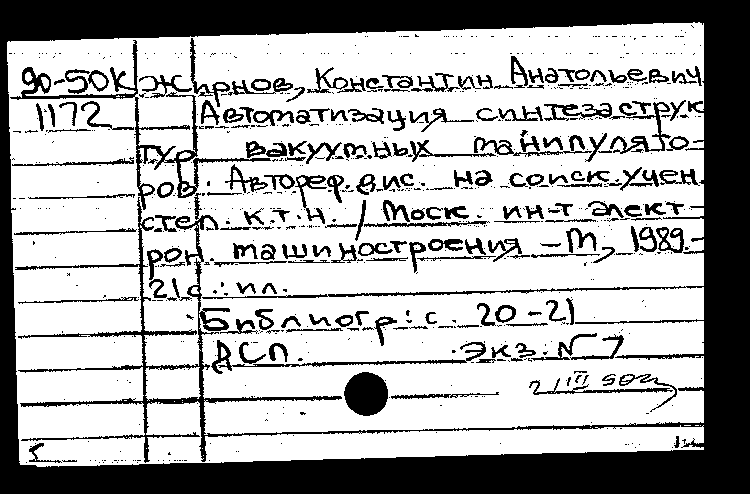 90-50К Жирнов, Константин Анатольевич
1172 Автоматизация синтеза струк
тур вакуумных манипулято-
ров: Автореф. дис. на соиск. учен.
степ. к.т.н. / Моск. ин-т элект-
рон. машиностроения - М, 1989-
21с.: ил.
Библиогр: с. 20-21
ДСП. Экз. N 7
21 III 90г
5